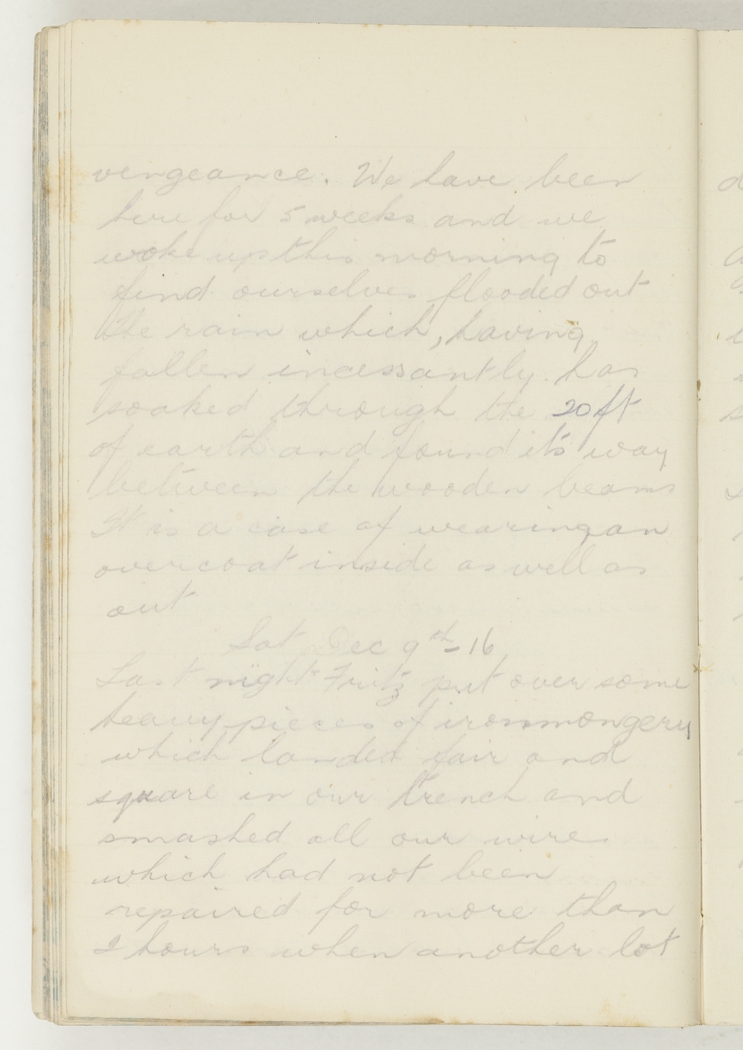 vengeance. We have been
here for 5 weeks and we
woke up this morning to
find ourselves flooded out
the rain which, having
fallen incessantly has
soaked through the 20 ft
of earth and found its way
between the wooden beams
It is a case of wearing an
overcoat inside as well as
out
Sat Dec 9th - 16
Last night Fritz put over some
heavy pieces of ironmongery
which landed fair and
square in our trench and
smashed all our wires
which had not been
repaired for more than
2 hours when another lot